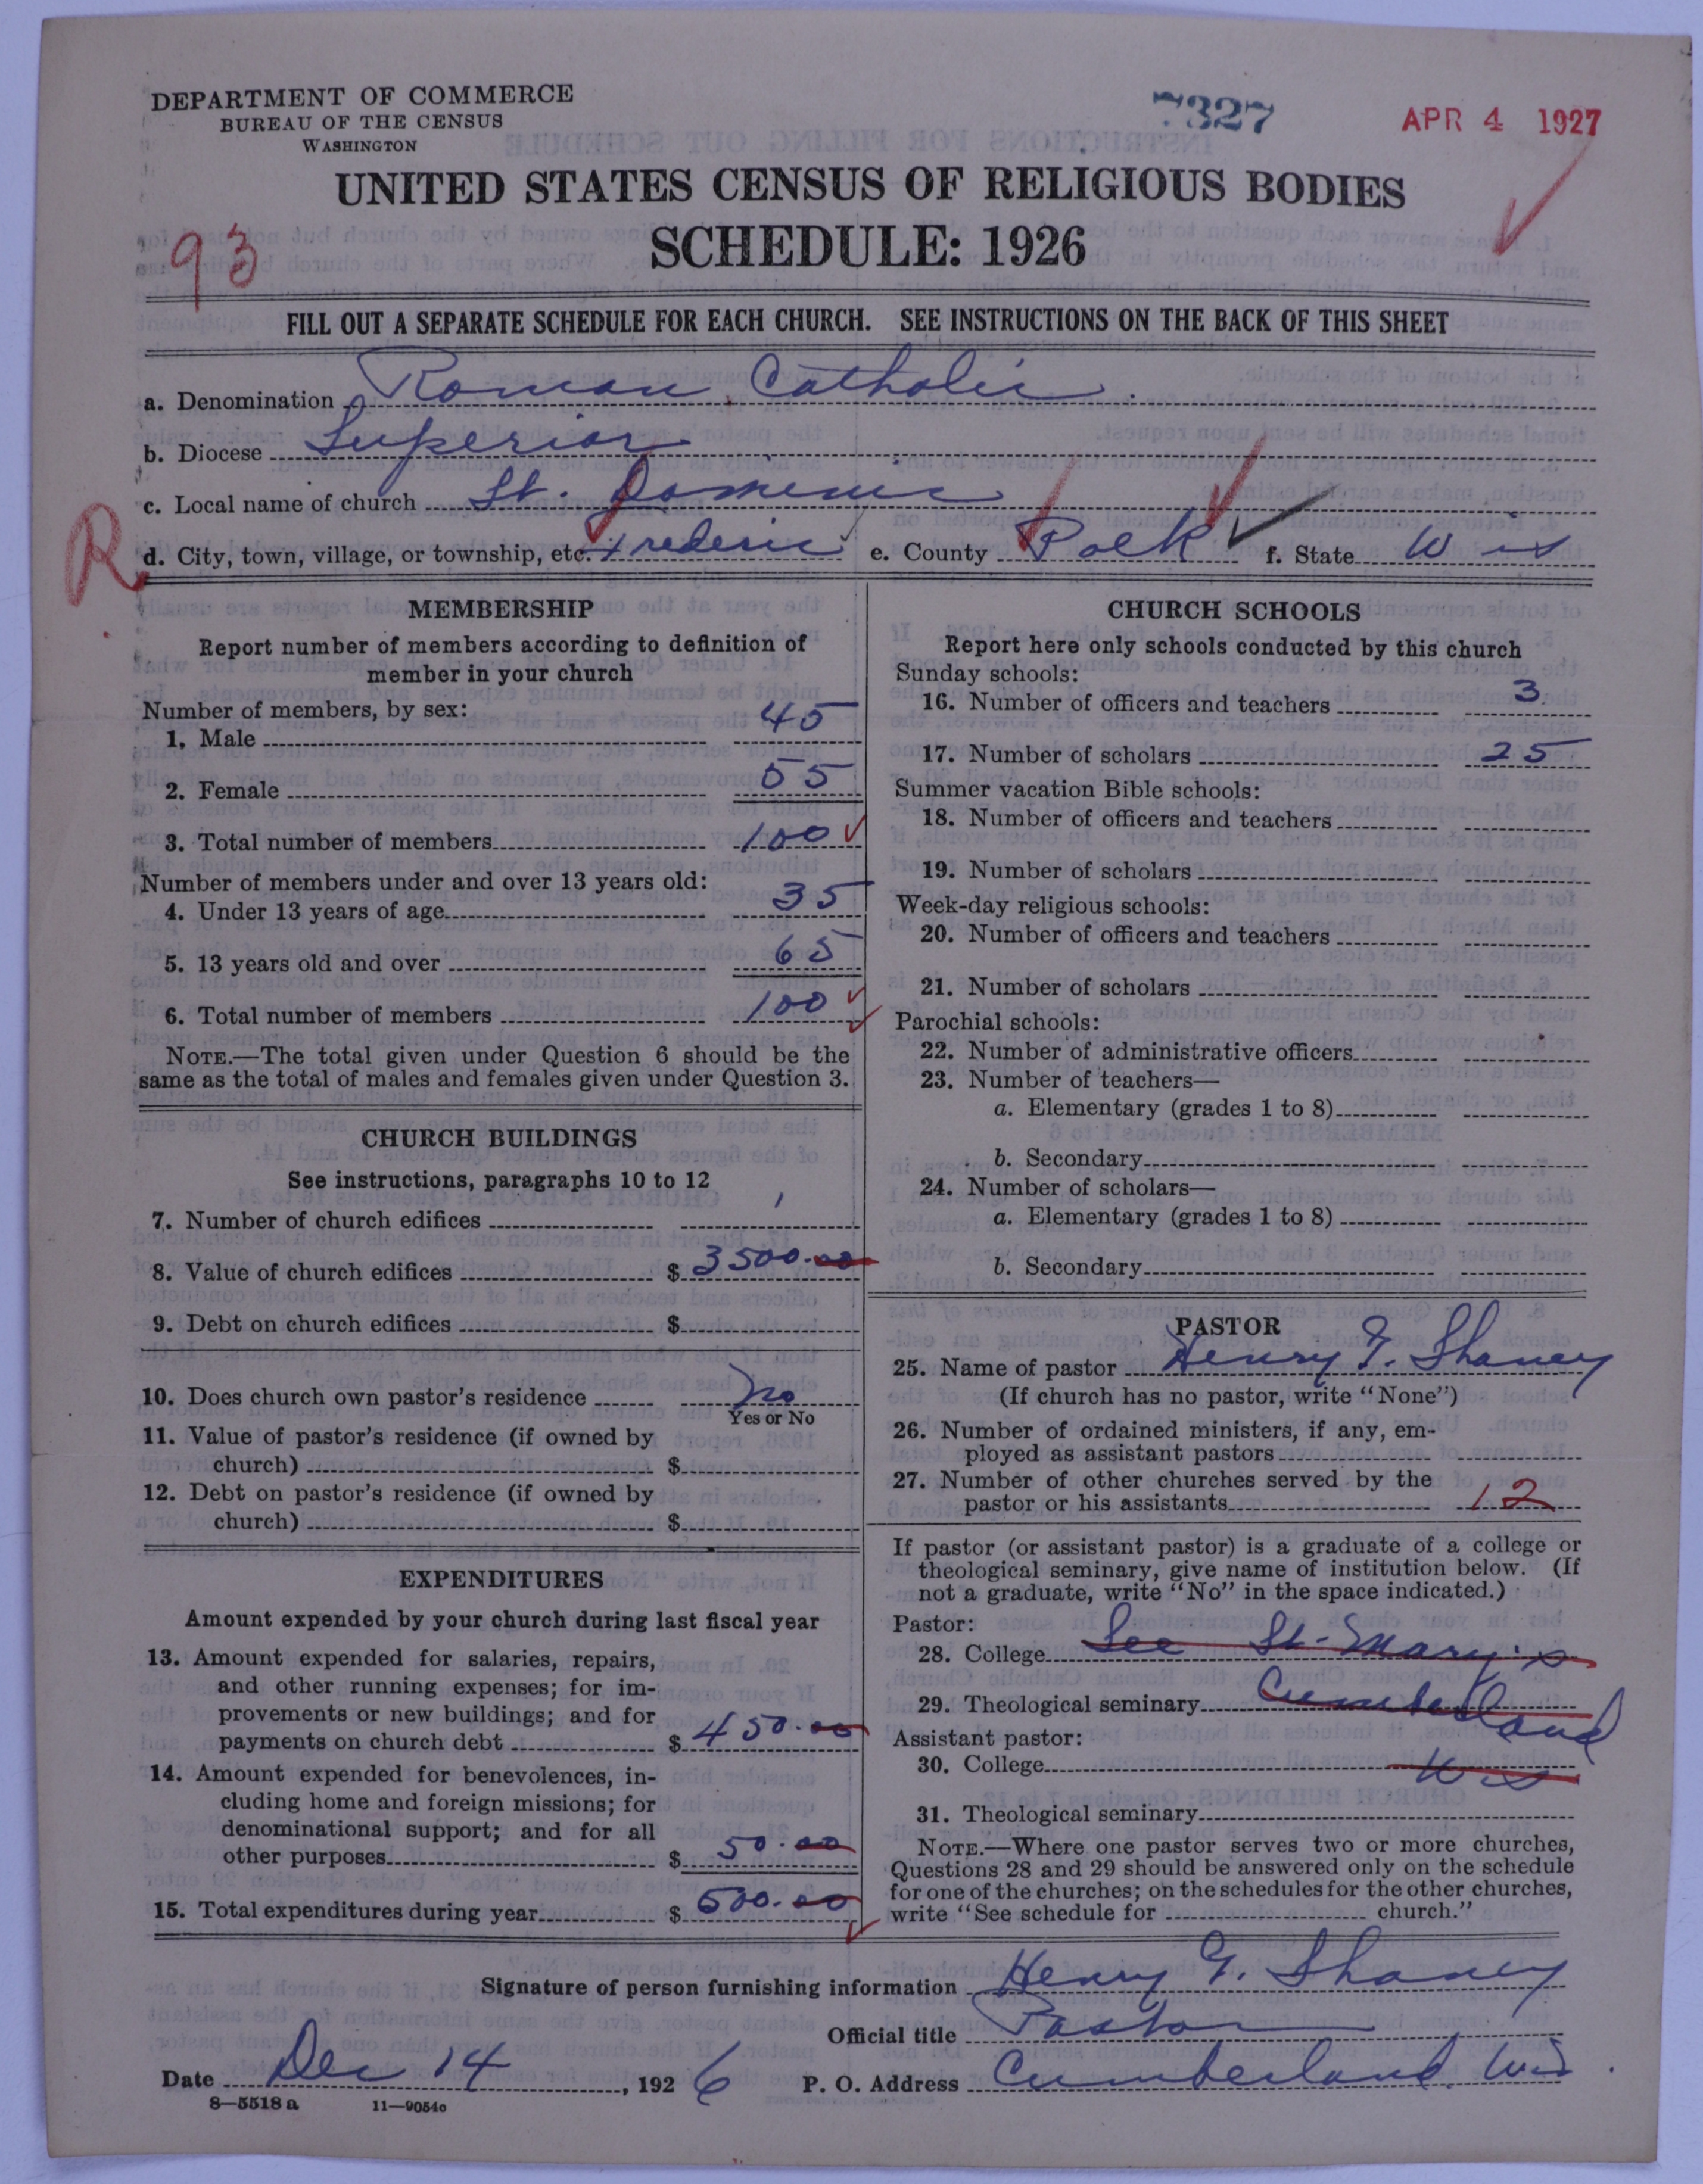 DEPARTMENT OF COMMERCE
BUREAU OF THE CENSUS
WASHINGTON
7327
APR 4 1927
UNITED STATES CENSUS OF RELIGIOUS BODIES
SCHEDULE: 1926
93
FILL OUT A SEPARATE SCHEDULE FOR EACH CHURCH. SEE INSTRUCTIONS ON THE BACK OF THIS SHEET
a. Denomination Roman Catholic
b. Diocese Superior
c. Local name of church St. Domenic
R
d. City, town, village, or township, etc. Frederic e. County Polk f. State Wis
MEMBERSHIP
Report number of members according to definition of
member in your church
Number of members, by sex:
1. Male 45
2. Female 55
3. Total number of members 100
Number of members under and over 13 years old:
4. Under 13 years of age 35
5. 13 years old and over 65
6. Total number of members 100
NOTE.—The total given under Question 6 should be the
same as the total of males and females given under Question 3.
CHURCH BUILDINGS
See instructions, paragraphs 10 to 12
7. Number of church edifices 1
8. Value of church edifices $ 3500.00
9. Debt on church edifices $
10. Does church own pastor's residence no
Yes or No
11. Value of pastor's residence (if owned by
church) $
12. Debt on pastor's residence (if owned by
church) $
EXPENDITURES
Amount expended by your church during last fiscal year
13. Amount expended for salaries, repairs,
and other running expenses; for im-
provements or new buildings; and for
payments on church debt $ 450.00
14. Amount expended for benevolences, in-
cluding home and foreign missions; for
denominational support; and for all
other purposes $ 50.00
15. Total expenditures during year $ 500.00
CHURCH SCHOOLS
Report here only schools conducted by this church
Sunday schools:
16. Number of officers and teachers 3
17. Number of scholars 25
Summer vacation Bible schools:
18. Number of officers and teachers
19. Number of scholars
Week-day religious schools:
20. Number of officers and teachers
21. Number of scholars
Parochial schools:
22. Number of administrative officers
23. Number of teachers—
a. Elementary (grades 1 to 8)
b. Secondary
24. Number of scholars—
a. Elementary (grades 1 to 8)
b. Secondary
PASTOR
25. Name of pastor Henry F. Shaney
(If church has no pastor, write "None")
26. Number of ordained ministers, if any, em-
ployed as assistant pastors
27. Number of other churches served by the
pastor or his assistants 12
If pastor (or assistant pastor) is a graduate of a college or
theological seminary, give name of institution below. (If
not a graduate, write "No" in the space indicated.)
Pastor:
28. College See St. Mary's
29. Theological seminary Cumberland
Assistant pastor:
30. College Wis
31. Theological seminary
NOTE.—Where one pastor serves two or more churches,
Questions 28 and 29 should be answered only on the schedule
for one of the churches; on the schedules for the other churches,
write "See schedule for church."
Signature of person furnishing information Henry F. Shaney
Official title Pastor
Date Dec 14, 1926 P. O. Address Cumberland Wis.
8—5518 a 11—9054c